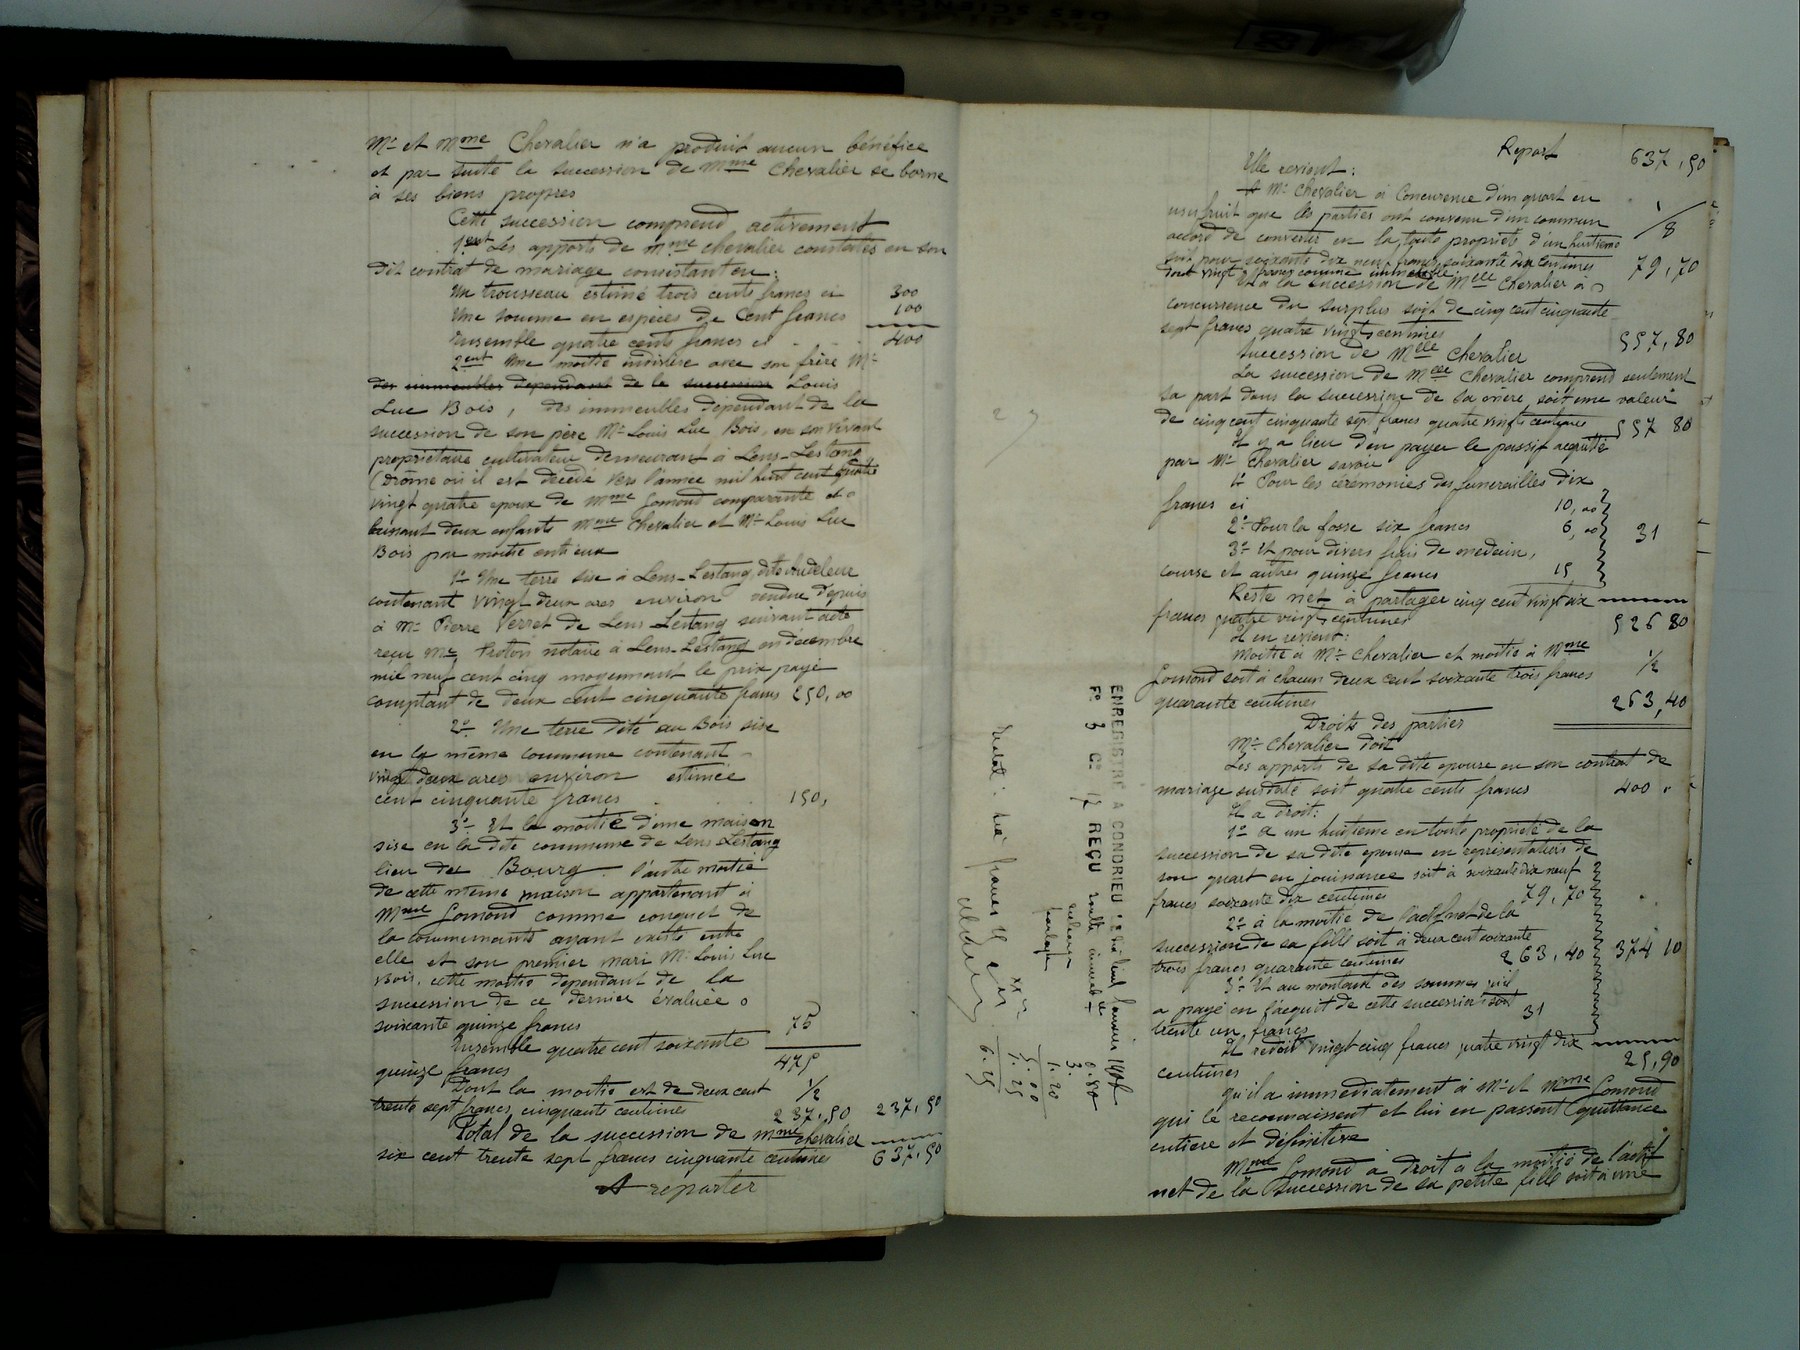 Mr et Mme Chevalier n'a produit aucun bénéfice
et par suite la succession de Mme Chevalier se borne
à ses biens propres
Cette succession comprend activement
1ent Les apports de Mme Chevalier constatés en son
dit contrat de mariage consistant en:
Un trousseau estimé trois cents francs ci 300
Une somme en espèces de Cent francs 100
Ensemble quatre cents francs ci 400
2ent Une moitié indivise avec son frère Mr
des immeubles dependant de la succession Louis
Luc Bois, des immeubles dépendant de la
succession de son père Mr Louis Luc Bois, en son vivant
propriétaire cultivateur demeurant à Lens-Lestang
(Drôme où il est décédé vers l'année mil huit cent quatre
vingt quatre epoux de Mme Gomond comparante et
laissant deux enfants Mme Chevalier et Mr Louis Luc
Bois par moitié entr'eux
1º Une terre sise à Lens-Lestang, dite
contenant vingt-deux ares environ vendue depuis
à Mr Pierre Verret de Lens Lestang suivant acte
reçu Me Proton notaire à Lens-Lestang en décembre
mil neuf cent cinq moyennant le prix payé
comptant de deux cent cinquante francs 250,00
2º Une terre dite au Bois sise
en la même commune contenant
vingt deux ares environ estimée
cent cinquante francs 150,
3º Et la moitié d'une maison
sise en la dite commune de Lens Lestang
lieu des Bourg l'autre moitié
de cette même maison appartenant à
Mme Gomond comme conquet de
la communauté ayant existé entre
elle et son premier mari Mr Louis Luc
Bois, cette moitié dependant de la
succession de ce dernier évaluée
soixante quinze francs 75
Ensemble quatre cent soixante
quinze francs 475
Dont la moitié est de deux cent 1/2
trente sept francs, cinquante centimes 237,50 237,50
Total de la succession de Mme Chevalier
six cent trente sept francs cinquante centimes 637,50
A reporter
Report 637,50
Elle revient:
A Mr Chevalier à Concurence d'un quart en
usufruit que les parties ont convenu d'un commun
accord de convertir en la toute propriété d'un huitième 1/8
soit pour soixante dix neuf francs soixante dix centimes 79,70
dont vingt francs comme immeuble
Et à la succession de Melle Chevalier à
concurrence du surplus soit de cinq cent cinquante
sept francs quatre vingts centimes 557,80
Succession de Melle Chevalier
La succession de Melle Chevalier comprend seulement
sa part dans la succession de sa mère, soit une valeur
de cinq cent cinquante sept francs quatre vingts centimes 557 80
Il y a lieu d'en payer le passif acquitté
par Mr Chevalier savoir
1º Pour les cérémonies des funerailles dix
francs ci 10,00
2º Pour la fosse six francs 6,00 31
3º Et pour divers frais de médecin,
course et autres quinze francs 15
Reste net à partager cinq cent vingt six
francs quatre vingts centimes 526 80
Il en revient:
Moitié à Mr Chevalier et moitié à Mme 1/2
Gomond soit à chacun deux cent soixante trois francs
quarante centimes 263,40
Droits des parties
Mr Chevalier doit
Les apports de sa dite epouse en son contrat de
mariage susdaté soit quatre cents francs 400 "
Il a droit:
1º A un huitieme en toute propriété de la
succession de sa dite epouse en représentation de
son quart en jouissance soit à soixante dix neuf
francs soixante dix centimes 79,70
2º à la moitié de l'actif net de la
succession de sa fille soit à deux cent soixante
trois francs quarante centimes 263,40 374 10
3º Et au montant des sommes qu'il
a payé en l'acquit de cette succession soit
trente un francs 31
Il redoit vingt cinq francs quatre vingt dix
centimes 25,90
qu'il a immediatement à Mr et Mme Gomond
qui le reconnaissent et lui en passent quittance
entiere et définitive
Mme Gomond a droit à la moitié de l'actif
net de la succession de sa petite fille soit à une
ENREGISTRÉ A CONDRIEU
Fº 3 Cº 17 REÇU
0.80
3.
1.20
5.00
1.25
6.25